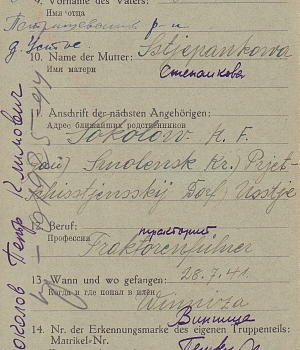 9. Vorname des Vaters:
Имя отца
Петрищевский р-н
д. Устье
10. Name der Mutter: Stjepankowa
Имя матери Степанкова
11. Anschrift der nächsten Angehörigen:
Адрес ближайших родственников
Sokolow K. F.
Smolensk Kr.) Prjet-
schisstjenskij Dorf) Usstje
12. Beruf: тракторист
Профессия Traktorenführer
13. Wann und wo gefangen: 28.7.41.
Когда и где попал в плен
Winniza
Винница
14. Nr. der Erkennungsmarke des eigenen Truppenteils:
Matrikel-Nr.
Соколов Петр Климович